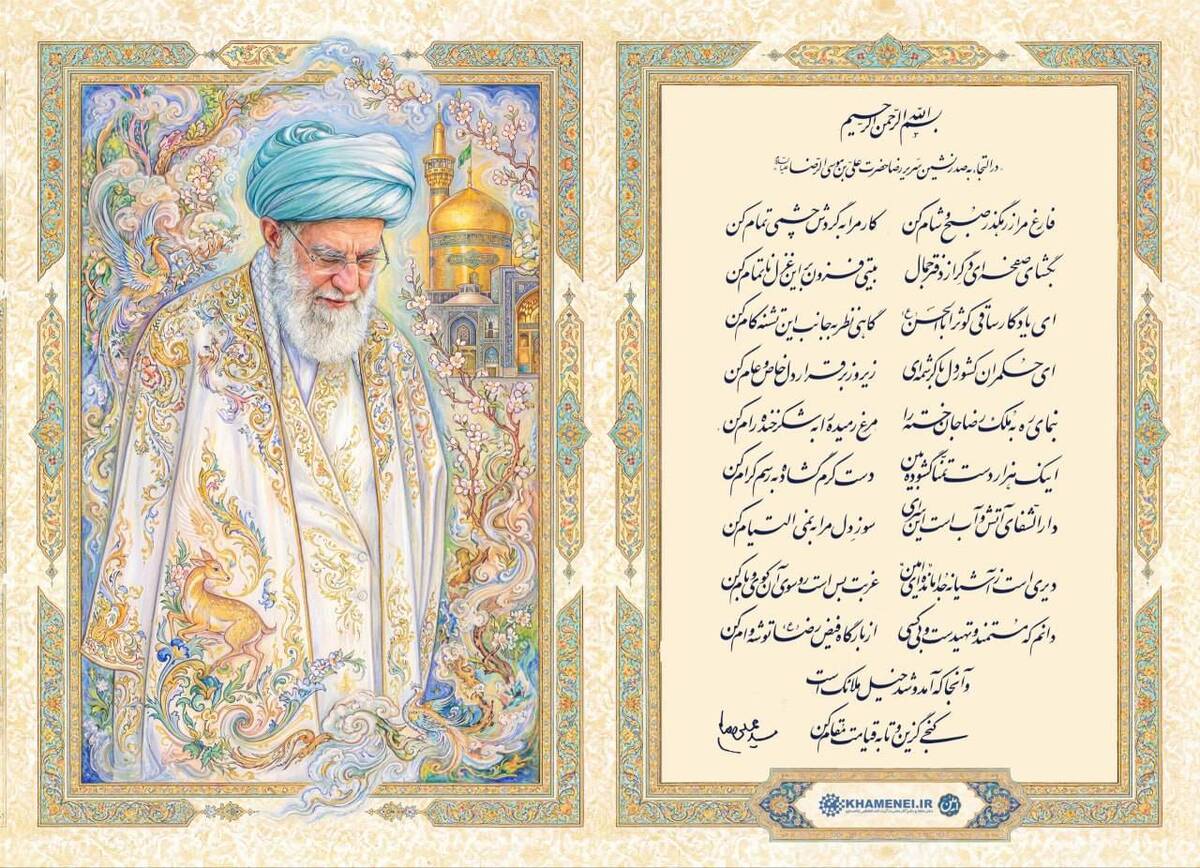 بسم الله الرحمن الرحیم
در التجاء به صدرنشین سریر رضا حضرت علی بن موسی الرضا علیه‌السلام
فارغ مرا ز رهگذر صبح و شام کن کار مرا به گردش چشمی تمام کن
بگشای صفحه‌ای دگر از دفتر جمال بیتی فزون بر این غزل ناتمام کن
ای یادگار ساقی کوثر اباالحسن(ع) گاهی نظر به جانب این تشنه کام کن
ای حکمران کشور دل با کرشمه‌ای زیر و زبر قرار دل خاص و عام کن
بنمای ره به ملک رضا جان خسته را مرغ رمیده را به شکرخنده رام کن
اینک هزار دست تمنا گشوده بین دست کرم گشا و به رسم کرام کن
دارالشفای آتش و آب است این سرای سوز دل مرا به نمی التیام کن
دیری است ز آشیانه جدا مانده‌ای امین غربت بس است روسوی آن کوی و بام کن
دانم که مستمند و تهیدست و بی کسی از بارگاه فیض رضا(ع) توشه وام کن
و آنجا که آمد و شد خیل ملائک است
کنجی گزین و تا به قیامت مقام کن
KHAMENEI.IR